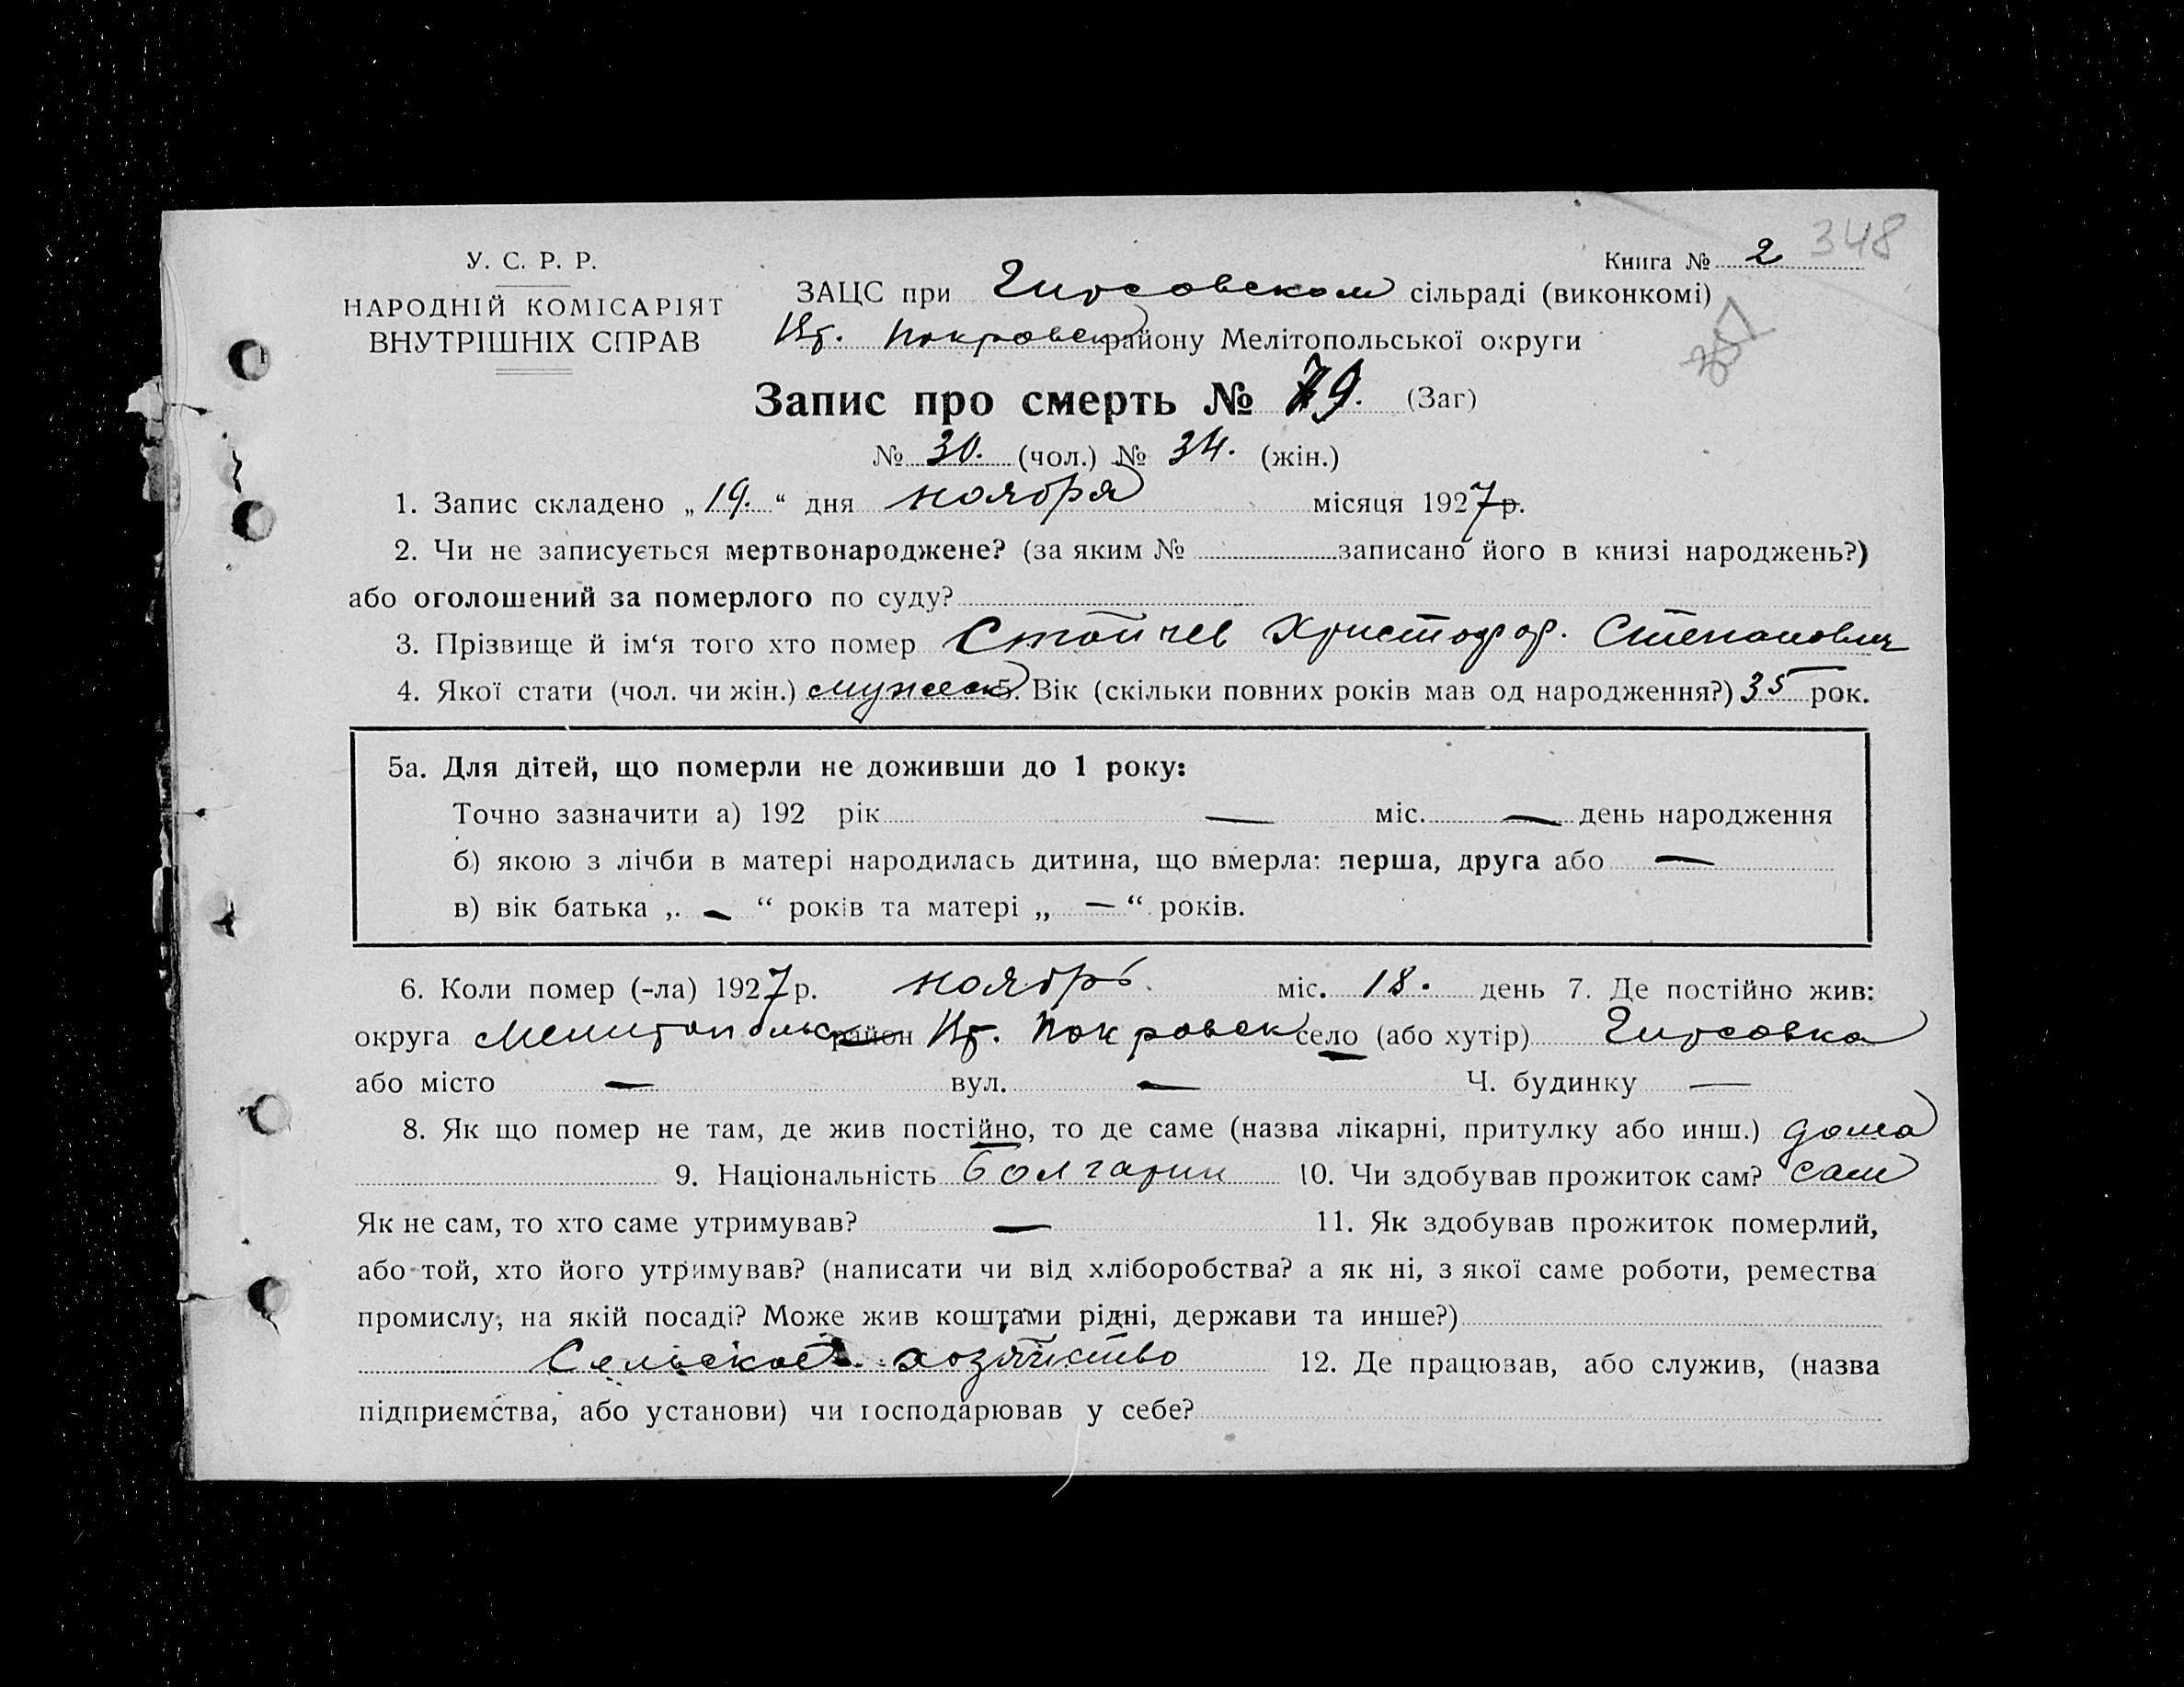 У. С. Р. Р.
НАРОДНІЙ КОМІСАРІЯТ
ВНУТРІШНІХ СПРАВ
Книга № 2 348
ЗАЦС при Гирсовском сільраді (виконкомі)
Нг. Покровск району Мелітопольської округи
Запис про смерть № 79. (Заг)
№ 30. (чол.) № 34. (жін.)
1. Запис складено „19.“ дня ноября місяця 1927 р.
2. Чи не записується мертвонароджене? (за яким № записано його в книзі народжень?)
або оголошений за померлого по суду?
3. Прізвище й ім‘я того хто помер Стойчев Христофор. Степанович
4. Якої стати (чол. чи жін.) мужеск 5. Вік (скільки повних років мав од народження?) 35 рок.
5а. Для дітей, що померли не доживши до 1 року:
Точно зазначити а) 192 рік — міс. — день народження
б) якою з лічби в матері народилась дитина, що вмерла: перша, друга або —
в) вік батька „ — “ років та матері „ — “ років.
6. Коли помер (-ла) 1927 р. ноябрь міс. 18. день 7. Де постійно жив:
округа Мелитопольск район Нг. Покровск село (або хутір) Гирсовка
або місто — вул. — Ч. будинку —
8. Як що помер не там, де жив постійно, то де саме (назва лікарні, притулку або инш.) дома
9. Національність болгарин 10. Чи здобував прожиток сам? сам
Як не сам, то хто саме утримував? — 11. Як здобував прожиток померлий,
або той, хто його утримував? (написати чи від хліборобства? а як ні, з якої саме роботи, ремества
промислу, на якій посаді? Може жив коштами рідні, держави та инше?)
Сельское хозяйство 12. Де працював, або служив, (назва
підприємства, або установи) чи господарював у себе?